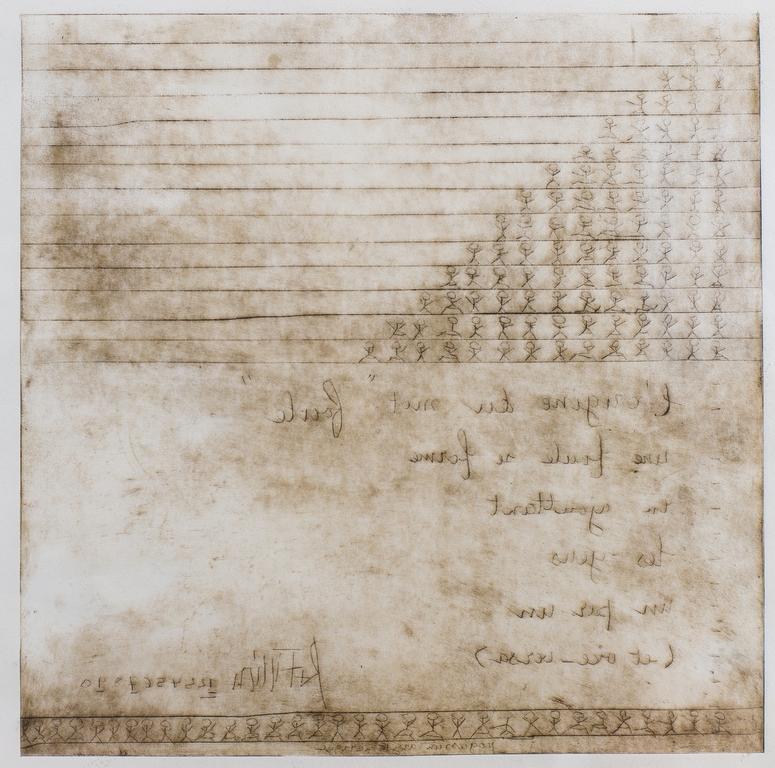 L'origine du mot "foule"
une foule se forme
en ajoutant
les gens
un par un
(et vice-versa)
1234567890